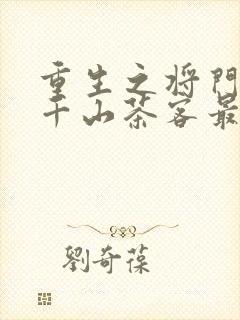 重生之将门
千山茶客最
劉奇葆